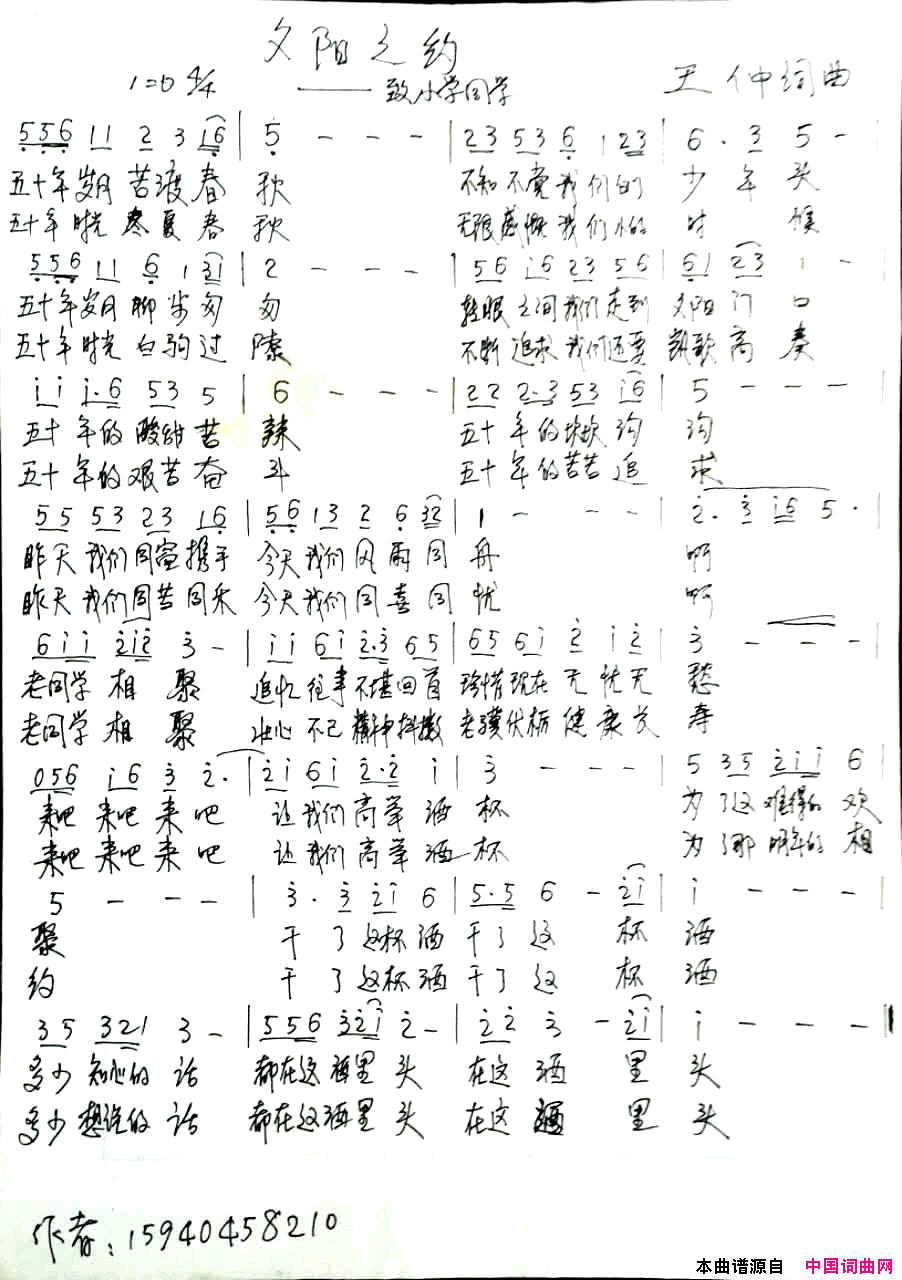 夕阳之约
1=D 4/4 ——致小学同学 王仲词曲
5 5 6 1 1 2 3 1 6 | 5 - - - | 2 3 5 3 6 1 2 3 | 6 . 3 5 -
五十年岁月 苦渡春 秋 不知不觉我们的 少年头
五十年时光 寒夏春 秋 无限感慨我们小的 时候
5 5 6 1 1 6 1 3 1 | 2 - - - | 5 6 i 6 2 3 5 6 | 6 1 2 3 1 -
五十年岁月 步匆 匆 之间我们走到 夕阳门口
五十年时光 白驹过 隙 不断追求我们还要 凯歌高奏
i i i . 6 5 3 5 | 6 - - - | 2 2 2 . 3 5 3 i 6 | 5 - - -
五十年的酸甜苦 辣 五十年的坎坎沟 沟
五十年的艰苦奋 斗 五十年的苦苦追 求
5 5 5 3 2 3 1 6 | 5 6 1 3 2 6 3 2 | 1 - - - | 2 . 3 i 6 5 .
昨天我们同窗携手 今天我们风雨同 舟 啊
昨天我们同苦同乐 今天我们同喜同 忧 啊
6 i i 2 i 2 3 - | i i 6 i 2 . 3 6 5 | 6 5 6 i 2 i 2 | 3 - - -
老同学相聚 追忆往事不堪回首 珍惜现在无忧无 愁
老同学相聚 壮心不已精神抖擞 老骥伏枥健康长 寿
0 5 6 i 6 3 2 . | 2 i 6 i 2 . 2 i | 3 - - - | 5 3 5 2 i i 6
来吧来吧来吧 让我们高举酒 杯 为了这难得的欢
来吧来吧来吧 让我们高举酒 杯 为了那明年的相
5 - - - | 3 . 3 2 i 6 | 5 . 5 6 - 2 i | i - - -
聚 干了这杯酒 干了这 杯 酒
约 干了这杯酒 干了这 杯 酒
3 5 3 2 1 3 - | 5 5 6 3 2 i 2 - | 2 2 3 - 2 i | i - - -
多少知心的话 都在这酒里头 在这酒 里 头
多少想说的话 都在这酒里头 在这酒 里 头
作者:15940458210
本曲谱源自 中国词曲网